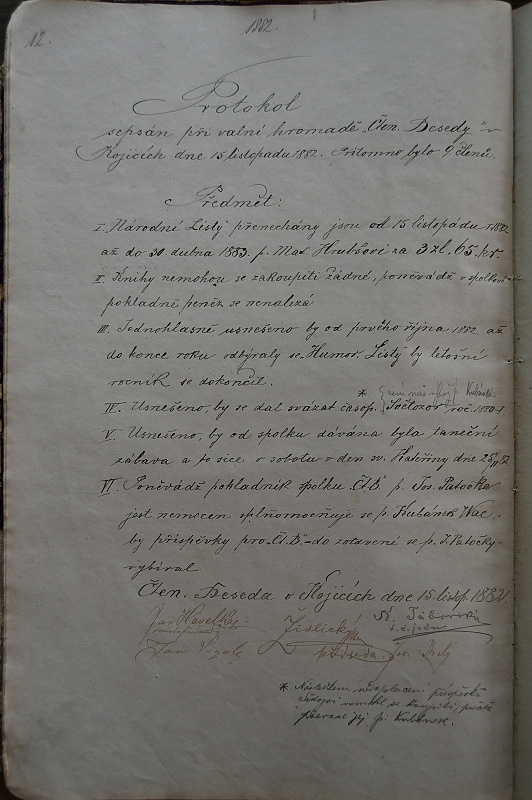 12.
1882.
Protokol
sepsán při valní hromadě „Čten. Besedy" v
Kojicích dne 15 listopadu 1882. Přítomno bylo 9 členů.
Předmět:
I. Národní Listy přenechány jsou od 15 listopadu 1882
až do 30 dubna 1883 p. Mat. Hrubšovi za 3 zl. 65. kr.
II. Knihy nemohou se zakoupiti žádné, poněvádž v spolkové
pokladně peněz se nenalezá
III. Jednohlasně usnešeno by od prvého října 1882 až
do konce roku odbýraly se „Humor. Listy by letošní
ročník se dokončil.
IV. Usnešeno, by se dal svázat časop. Světozor roč. 1880-1
* Kubánek
V. Usnešeno, by od spolku dávána byla taneční
zábava a to sice v sobotu v den sv. Kateřiny dne 25/11 82
VI. Poněvádž pokladník spolku „Čt.B" p. Jos. Patočka
jest nemocen splnomocňuje se p. Kubánek Vác.
by příspěvky pro „Čt.B" do zotavení se p. J. Patočky
vybíral
Čten. Beseda v Kojicích dne 15. listop. 1882
Jan Havelka
Žižlický
předseda.
Jos. Malý
Táborský
t. č. jedn.
Jan
* Následkem nedoplacení příspěvků
časopis nemohl se koupiti, proto
převzal jej p. Kubánek.